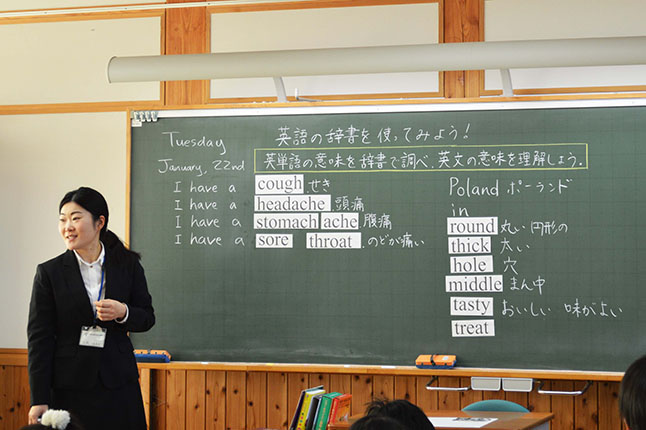 Tuesday
January, 22nd
英語の辞書を使ってみよう!
英単語の意味を辞書で調べ、英文の意味を理解しよう.
I have a cough せき
I have a headache 頭痛
I have a stomach ache 腹痛
I have a sore throat のどが痛い
Poland ポーランド
in
round 丸い 円形の
thick 太い
hole 穴
middle まん中
tasty おいしい 味がよい
treat